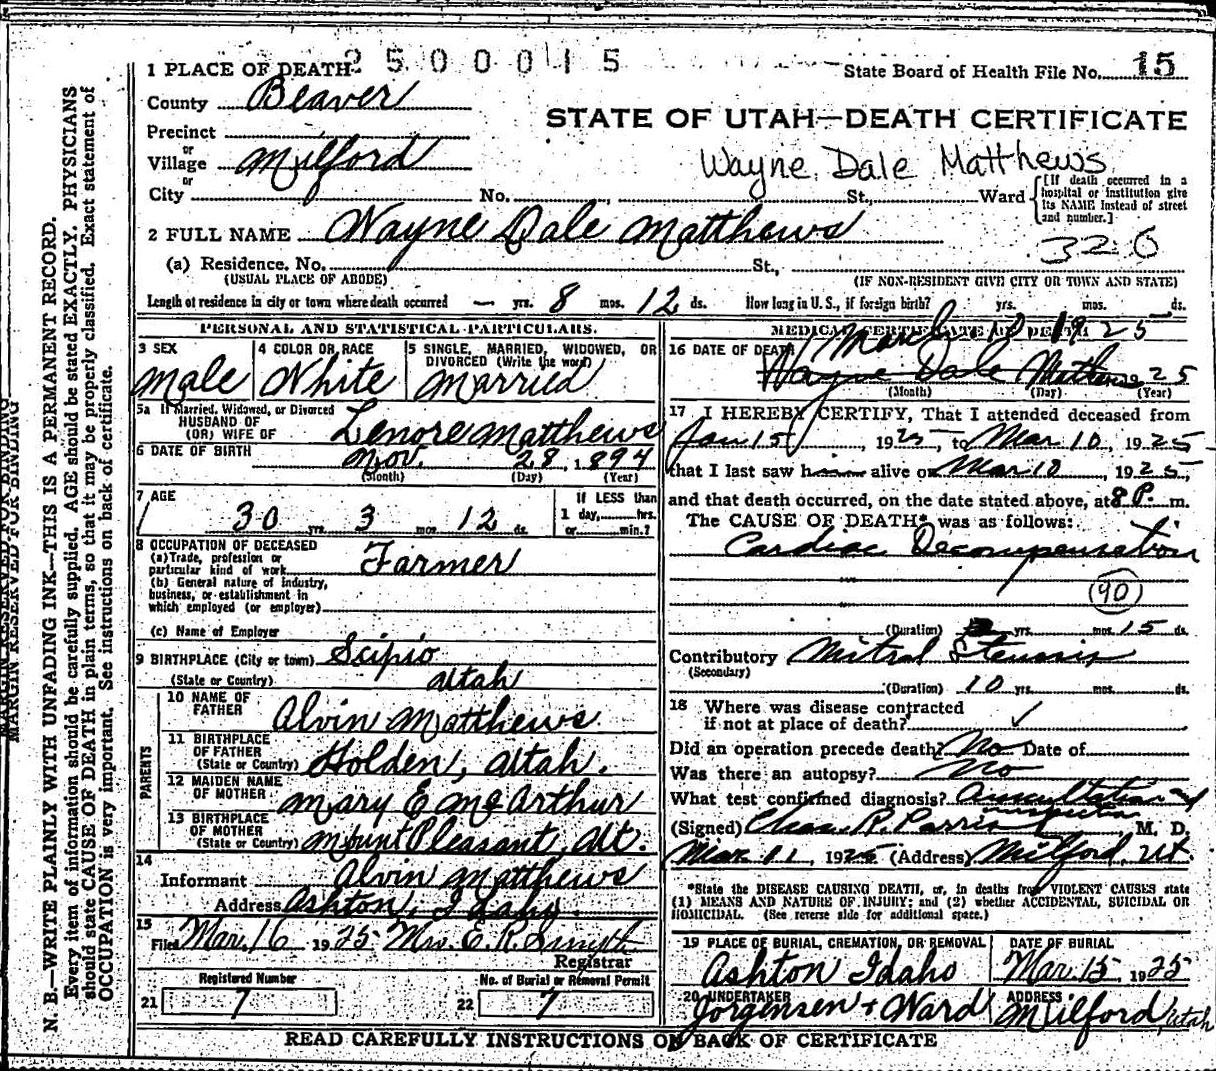 2500015
1 PLACE OF DEATH
State Board of Health File No. 15
County Beaver
STATE OF UTAH—DEATH CERTIFICATE
Precinct
or
Village Milford
Wayne Dale Matthews
or
City No. St., Ward
[If death occurred in a hospital or institution give its NAME instead of street and number.]
2 FULL NAME Wayne Dale Matthews
320
(a) Residence. No. St.,
(USUAL PLACE OF ABODE) (IF NON-RESIDENT GIVE CITY OR TOWN AND STATE)
Length of residence in city or town where death occurred — yrs. 8 mos. 12 ds. How long in U. S., if foreign birth? yrs. mos. ds.
PERSONAL AND STATISTICAL PARTICULARS.
3 SEX
Male
4 COLOR OR RACE
White
5 SINGLE, MARRIED, WIDOWED, OR DIVORCED (Write the word)
Married
5a If Married, Widowed, or Divorced
HUSBAND OF
(OR) WIFE OF Lenore Matthews
6 DATE OF BIRTH Nov. 28, 1894
(Month) (Day) (Year)
7 AGE
30 yrs. 3 mos. 12 ds.
If LESS than
1 day, hrs.
or min.?
8 OCCUPATION OF DECEASED
(a) Trade, profession or
particular kind of work Farmer
(b) General nature of industry,
business, or establishment in
which employed (or employer)
(c) Name of Employer
9 BIRTHPLACE (City or town) Scipio
(State or Country) Utah
PARENTS
10 NAME OF
FATHER Alvin Matthews
11 BIRTHPLACE
OF FATHER
(State or Country) Holden, Utah.
12 MAIDEN NAME
OF MOTHER Mary E McArthur
13 BIRTHPLACE
OF MOTHER
(State or Country) Mount Pleasant, Ut.
14
Informant Alvin Matthews
Address Ashton, Idaho.
15
Filed Mar. 16 1925 Mrs. E. R. Smyth
Registrar
Registered Number
21 7
No. of Burial or Removal Permit
22 7
MEDICAL CERTIFICATE OF DEATH
March 10 1925
16 DATE OF DEATH
Wayne Dale Matthews 25
(Month) (Day) (Year)
17 I HEREBY CERTIFY, That I attended deceased from
Jan 15, 1925, to Mar 10, 1925
that I last saw him alive on Mar 10, 1925,
and that death occurred, on the date stated above, at 8 P. m.
The CAUSE OF DEATH* was as follows:
Cardiac Decompensation
90
(Duration) yrs. mos. 15 ds.
Contributory Mitral Stenosis
(Secondary)
(Duration) 10 yrs. mos. ds.
18 Where was disease contracted
if not at place of death?
Did an operation precede death? No Date of
Was there an autopsy? No
What test confirmed diagnosis? Auscultation and
inspection
(Signed) Chas. R. Parrish, M. D.
Mar 11, 1925 (Address) Milford, Ut.
*State the DISEASE CAUSING DEATH, or, in deaths from VIOLENT CAUSES state
(1) MEANS AND NATURE OF INJURY; and (2) whether ACCIDENTAL, SUICIDAL OR
HOMICIDAL. (See reverse side for additional space.)
19 PLACE OF BURIAL, CREMATION, OR REMOVAL
Ashton Idaho
DATE OF BURIAL
Mar. 15 1925
20 UNDERTAKER
Jorgensen & Ward
ADDRESS
Milford, Utah
READ CAREFULLY INSTRUCTIONS ON BACK OF CERTIFICATE
MARGIN RESERVED FOR BINDING
N. B.—WRITE PLAINLY WITH UNFADING INK—THIS IS A PERMANENT RECORD.
Every item of information should be carefully supplied. AGE should be stated EXACTLY. PHYSICIANS
should state CAUSE OF DEATH in plain terms, so that it may be properly classified. Exact statement of
OCCUPATION is very important. See instructions on back of certificate.